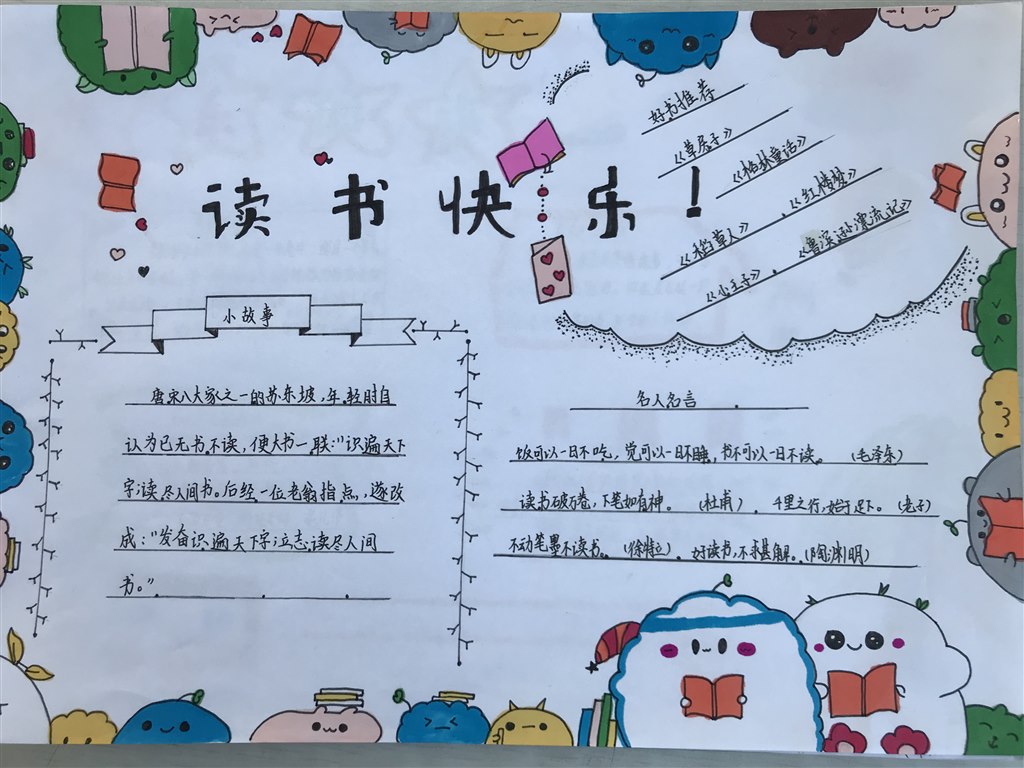 读书快乐！
好书推荐
《草房子》
《格林童话》
《稻草人》、《红楼梦》
《小王子》、《鲁滨逊漂流记》
小故事
唐宋八大家之一的苏东坡，年轻时自
认为已无书不读，便大书一联："识遍天下
字;读尽人间书。后经一位老翁指点，遂改
成："发奋识遍天下字;立志读尽人间
书。"
名人名言
饭可以一日不吃，觉可以一日不睡，书不可以一日不读。（毛泽东）
读书破万卷，下笔如有神。（杜甫）．千里之行，始于足下。（老子）
不动笔墨不读书。（徐特立）．好读书，不求甚解。（陶渊明）